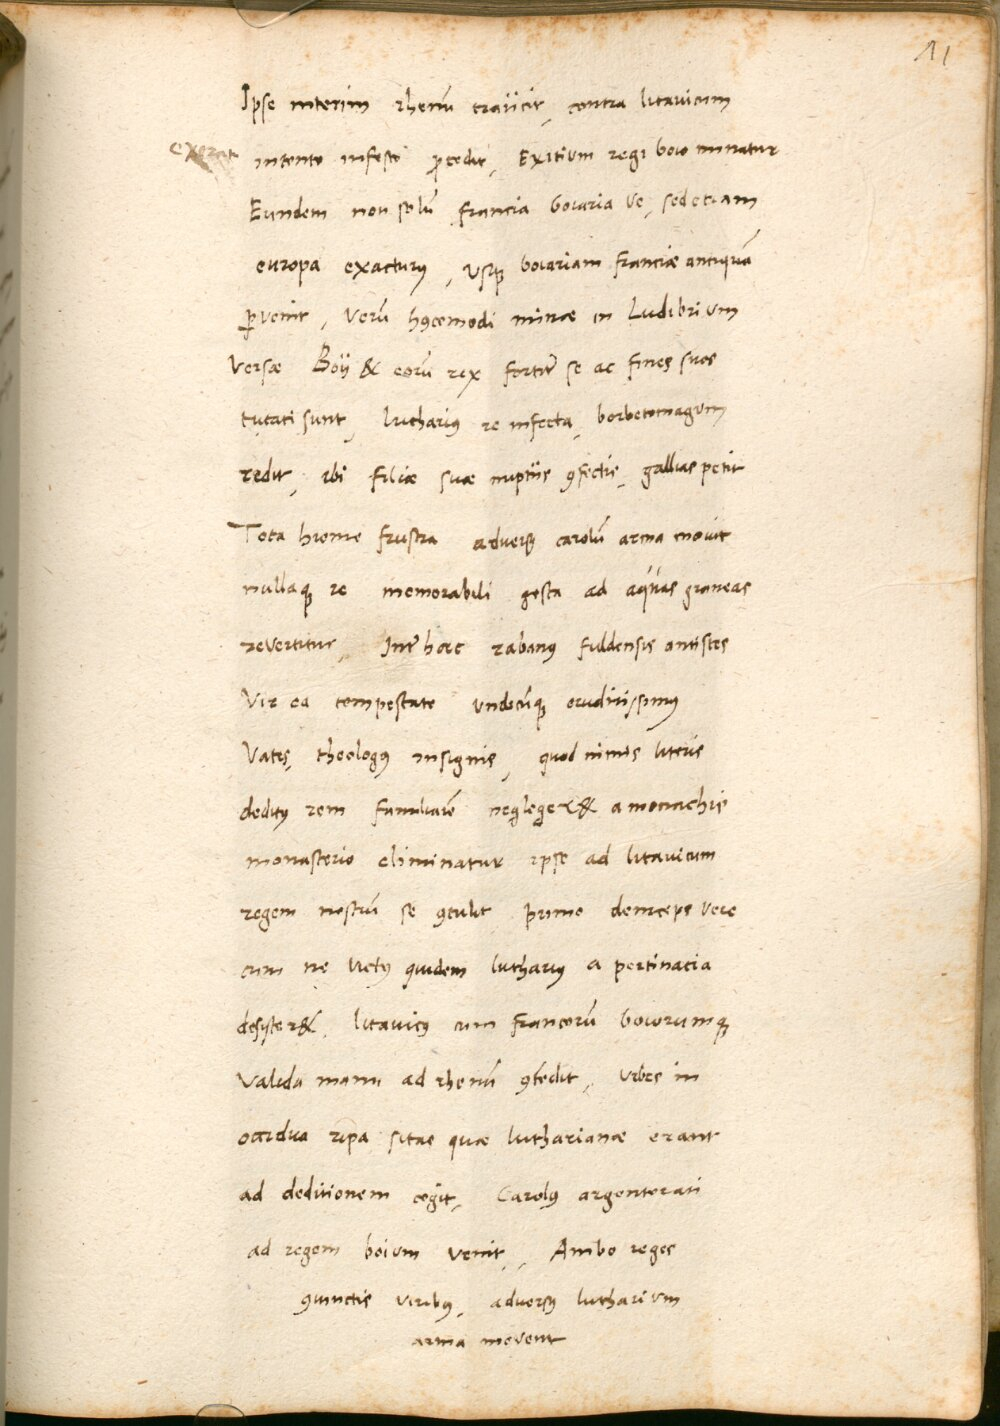 11
Ipse interim rhenū traiicit, contra litavicum
exercit intento infestoq̨ ꝓcedit, Exitium regi boio minatur
Eundem non solū francia boiaria ve, sed etiam
europa exacturꝰ, usq̨ boiariam franciæ antiquā
ꝑvenit, verū hꝰcemodi minæ in ludibrium
versæ Boij & eorū rex fortiť se ac fines suos
tutati sunt, lutharius re infecta, borbetomagum
redit, ibi filiæ suæ nuptiis ꝯfectis, gallias petit
Tota hieme frustra adversꝰ carolū arma movit
nullaq̨ re memorabili gesta ad aquas graneas
revertitur, Inť haec rabanꝰ fuldensis antistes
Vir ea tempestate undecūq̨ eruditissimꝰ
Vates, theologꝰ insignis, quod nimis literis
deditꝰ rem familiarē neglegeret & a monachis
monasterio eliminatur ipse ad litavicum
regem nostrū se ꝯtulit primo deinceps vere
cum ne victꝰ quidem lutharius a pertinacia
desyter&, litavicꝰ cum francorū boiorumq̨
valida manu ad rhenū ꝯtedit, urbes in
occidua ripa sitae quæ lutharianæ erant
ad deditionem cogit, Carolꝰ argentorati
ad regem boium venit, Ambo reges
ꝯiunctis viribꝰ, adversꝰ lutharium
arma movent